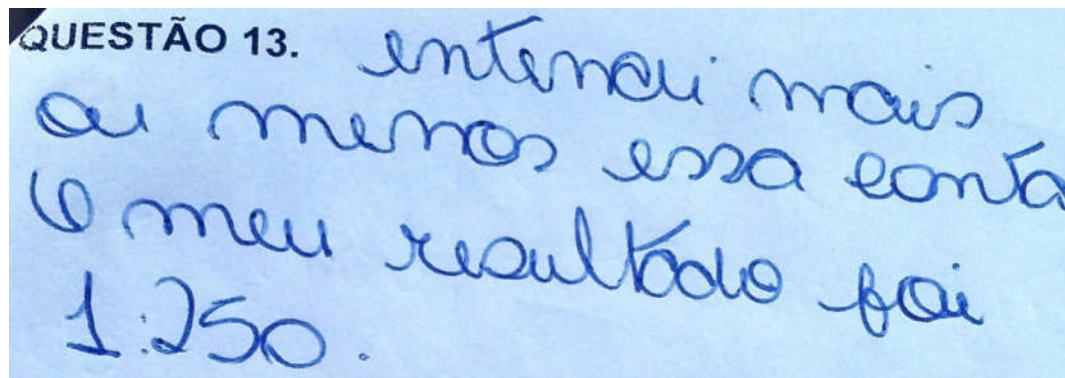 QUESTÃO 13. entendi mais
ou menos essa conta
O meu resultado foi
1.250.